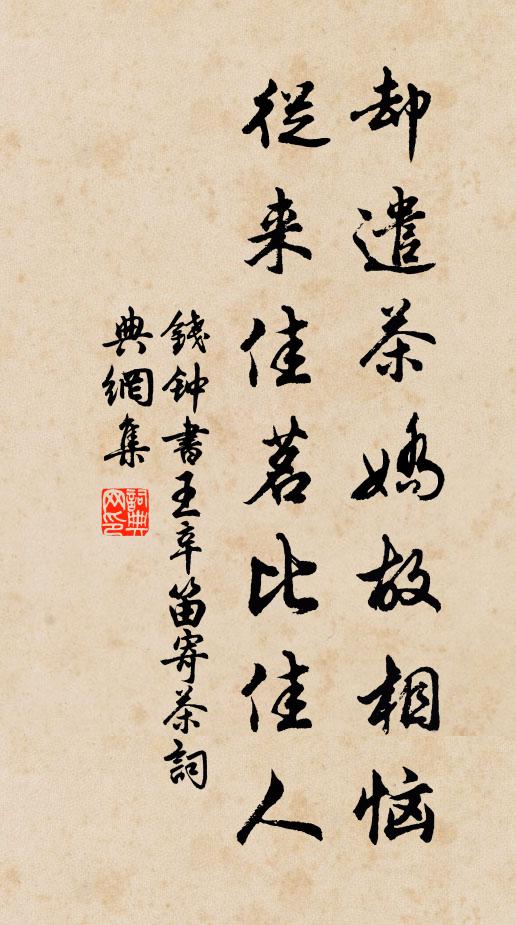 却遣茶嬌故相恼
從来佳茗比佳人
錢钟書王辛笛寄茶詞
典網集
詞典网印